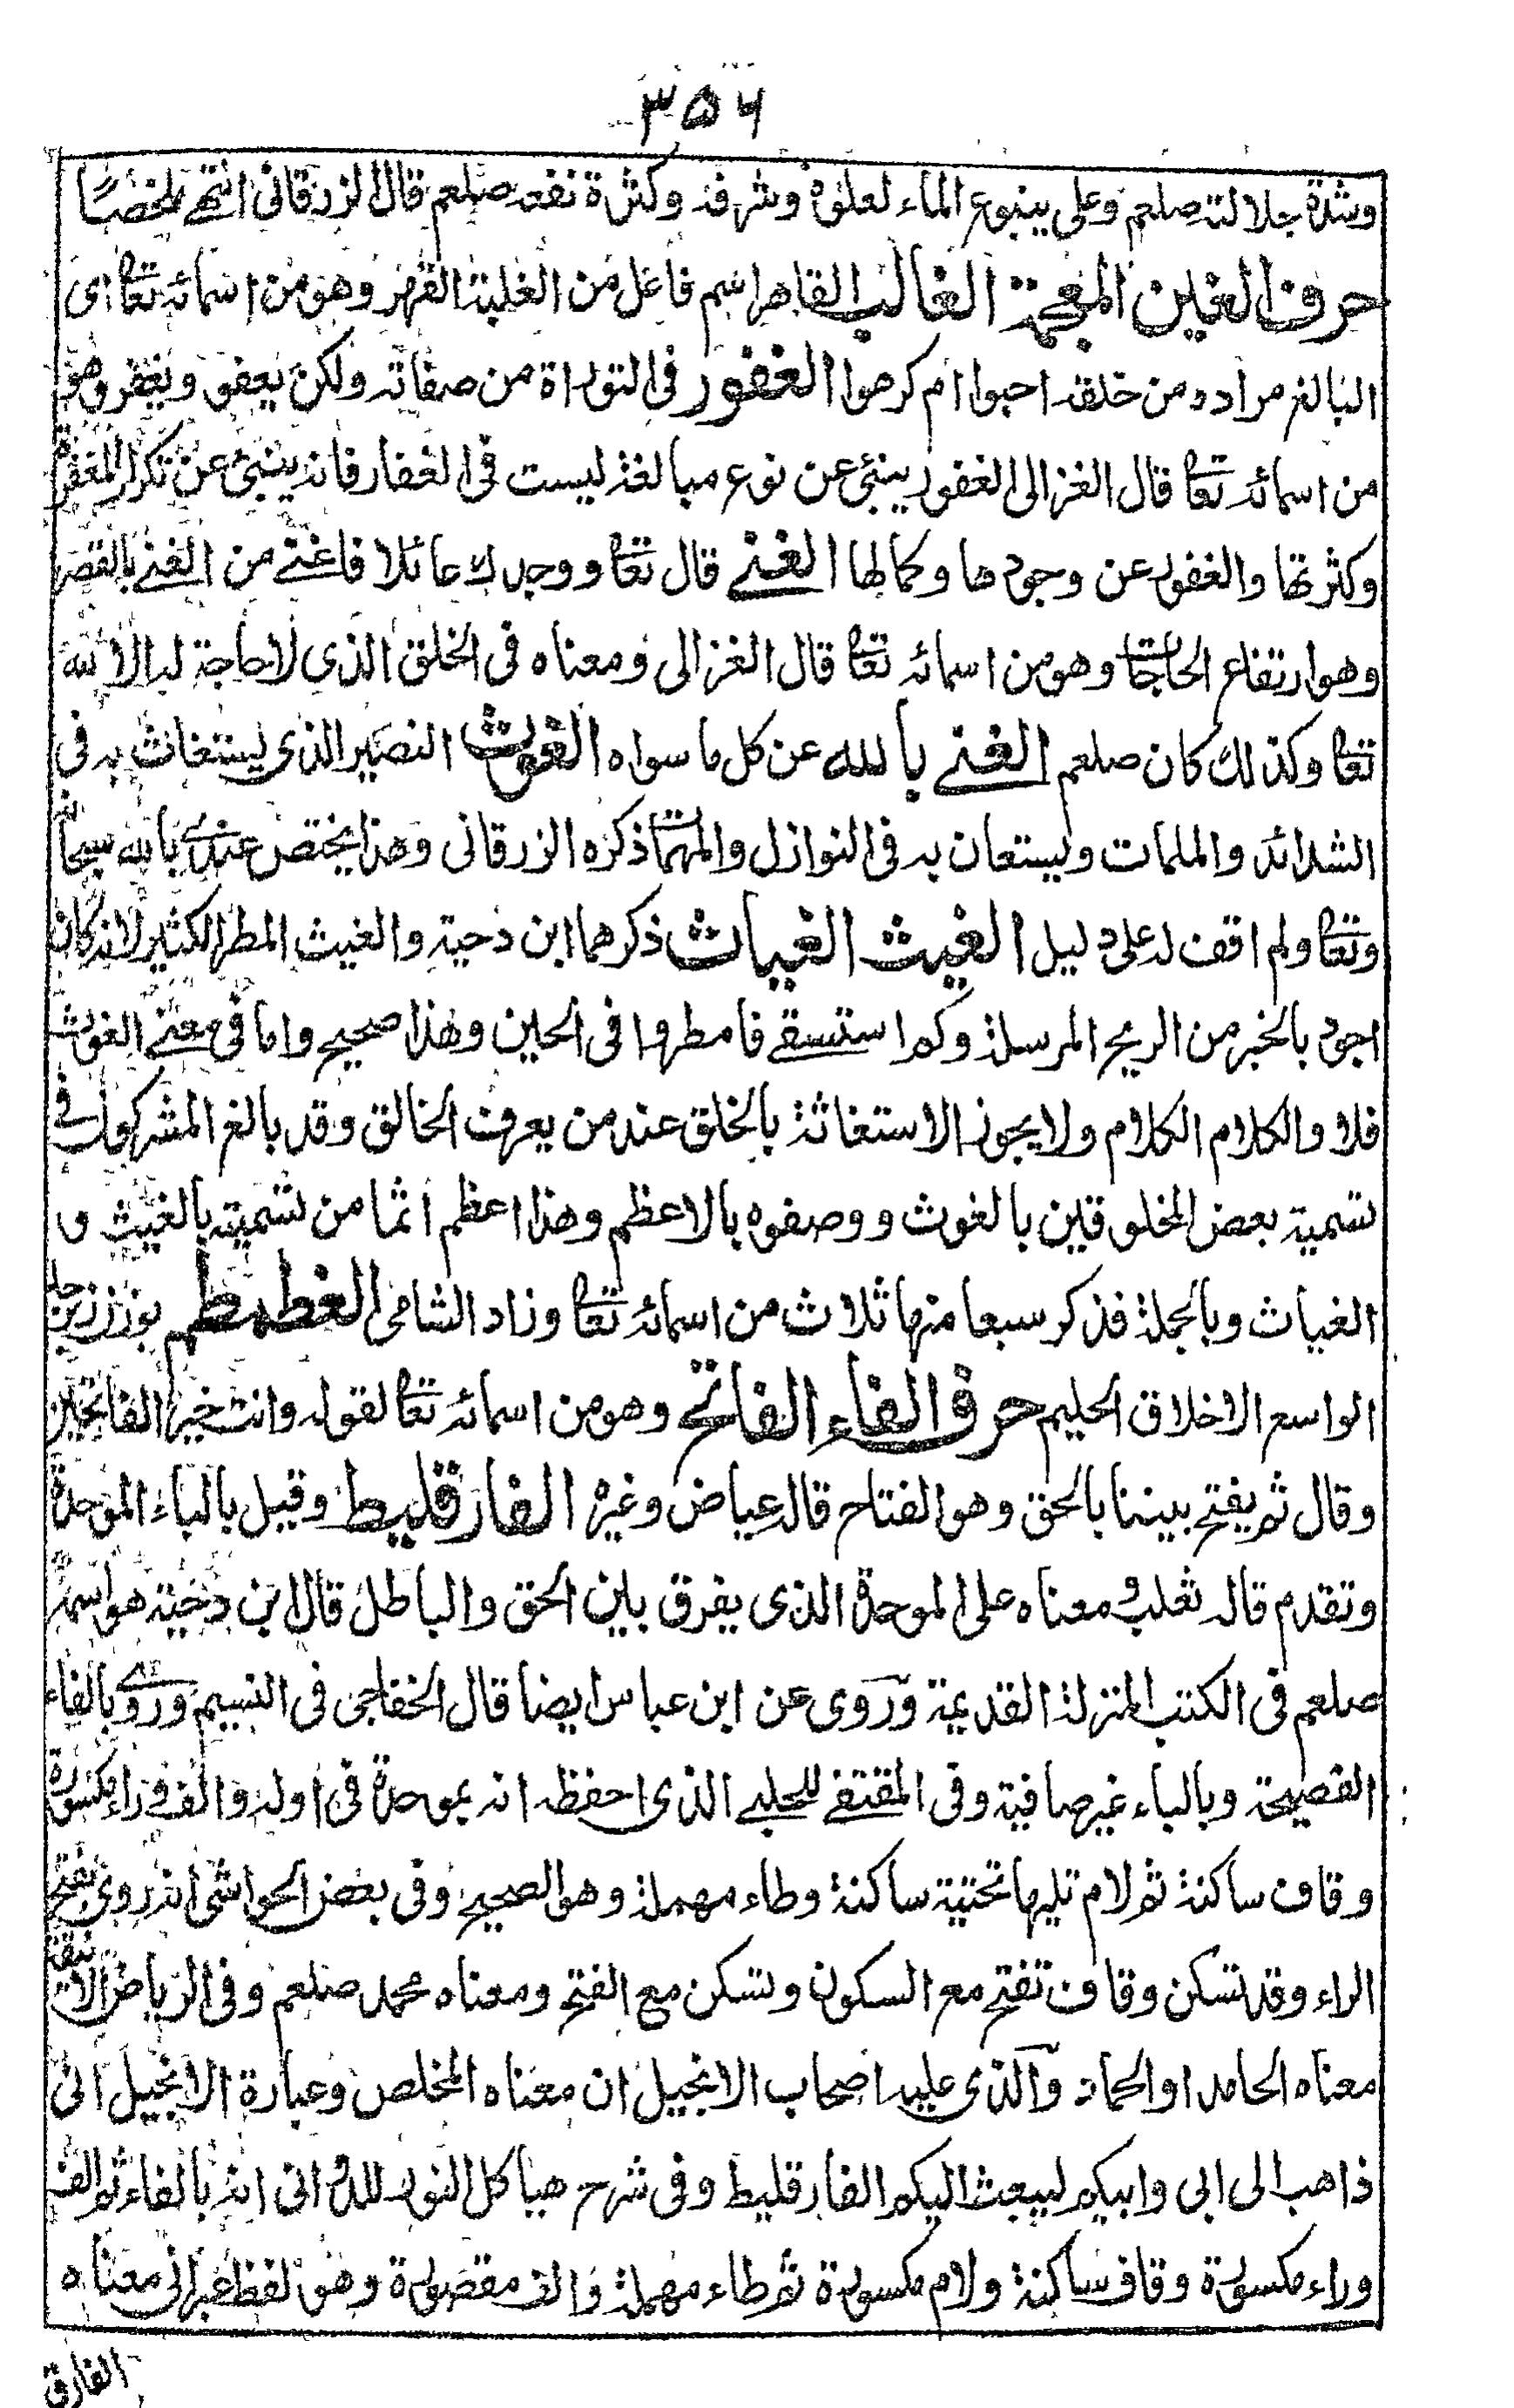 ٣٥٦
وشدة جلالته صلعم وعلى ينبوع الماء لعلوه وشرفه وكثرة نفعه صلعم قال الزرقانى انتهى ملخصًا
حرف الغين المعجمة الغالب القاهر اسم فاعل من الغلبة القهر وهو من اسمائه تعالى اى
البالغ مراده من خلقه احبوا ام كرهوا الغفور فى التوراة من صفاته ولكن يعفو ويغفر وهو
من اسمائه تعالى قال الغزالى الغفور ينبئ عن نوع مبالغة ليست فى الغفار فانه ينبئ عن تكرار المغفرة
وكثرتها والغفور عن وجودها وكمالها الغنى قال تعالى ووجدك عائلا فاغنى من الغنى بالقصر
وهو ارتفاع الحاجات وهو من اسمائه تعالى قال الغزالى ومعناه فى الخلق الذى لا حاجة له الا لله
تعالى وكذلك كان صلعم الغنى بالله عن كل ما سواه الغوث النصير الذى يستغاث به فى
الشدائد والملمات ويستعان به فى النوازل والمهمات ذكره الزرقانى وهذا يختص عندى بالله سبحانه
وتعالى ولم اقف له على دليل الغيث الغياث ذكرهما ابن دحية والغيث المطر الكثير لانه كان
اجود بالخير من الريح المرسلة وكم استسقى فامطروا فى الحين وهذا صحيح واما فى معنى الغوث
فلا والكلام الكلام ولا يجوز الاستغاثة بالخلق عند من يعرف الخالق وقد بالغ المشركون فى
تسمية بعض المخلوقين بالغوث ووصفوه بالاعظم وهذا اعظم اثما من تسميته بالغيث و
الغياث وبالجملة فذكر سبعا منها ثلاث من اسمائه تعالى وزاد الشامى الغطمطم بوزن زبرجد
الواسع الاخلاق الحليم حرف الفاء الفاتح وهو من اسمائه تعالى لقوله وانت خير الفاتحين
وقال ثم يفتح بيننا بالحق وهو الفتاح قاله عياض وغيره الفارقليط وقيل بالباء الموحدة
وتقدم قاله ثعلب ومعناه على الموحدة الذى يفرق بين الحق والباطل قال ابن دحية هو اسمه
صلعم فى الكتب المنزلة القديمة وروى عن ابن عباس ايضا قال الخفاجى فى النسيم وروى بالفاء
الفصيحة وبالباء غير صافية وفى المقتفى للحلبى الذى احفظه انه بموحدة فى اوله والف وراء مكسورة
وقاف ساكنة ثم لام تليها تحتية ساكنة وطاء مهملة وهو الصحيح وفى بعض الحواشى انه روى بفتح
الراء وقد تسكن وقاف تفتح مع السكون وتسكن مع الفتح ومعناه محمد صلعم وفى الرياض الانيقة
معناه الحامد او الحماد والذى عليه اصحاب الانجيل ان معناه المخلص وعبارة الانجيل انى
ذاهب الى ابى وابيكم ليبعث اليكم الفارقليط وفى شرح هياكل النور للدوانى انه بالفاء ثم الف
وراء مكسورة وقاف ساكنة ولام مكسورة ثم طاء مهملة والف مقصورة وهو لفظ عبرانى معناه
الفارق